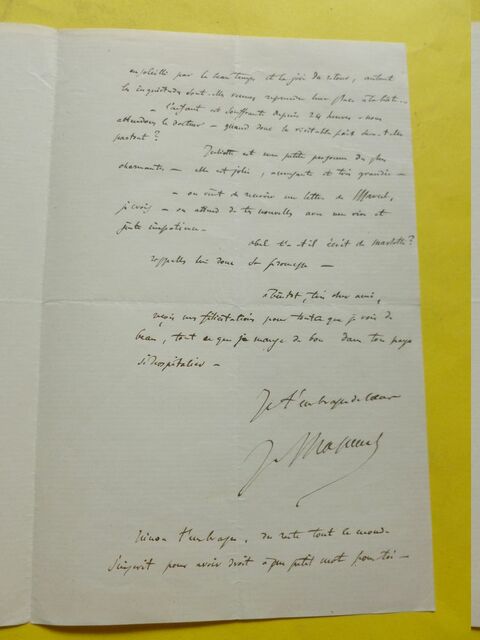 ensoleillé par le beau temps et la joie du retour, autant
les inquiétudes sont-elles venues reprendre leur place
— l'enfant est souffrante depuis 24 heures — nous
attendons le docteur — quand donc la véritable paix sera-t-elle
partout?
Juliette est une petite personne des plus
charmantes — elle est jolie, amusante et très grandie —
— on vient de recevoir une lettre de Marcel,
je crois — on attend de tes nouvelles avec une vive et
juste impatience —
Abel t'a-t-il écrit de Marlotte?
rappelles lui donc sa promesse —
à bientôt, très cher ami,
reçois mes félicitations pour tout ce que je vois de
beau, tout ce que je mange de bon dans ton pays
si hospitalier —
Je t'embrasse de cœur
J. Massenet
Ninon t'embrasse, du reste tout le monde
s'inscrit pour avoir droit à un petit mot pour toi —